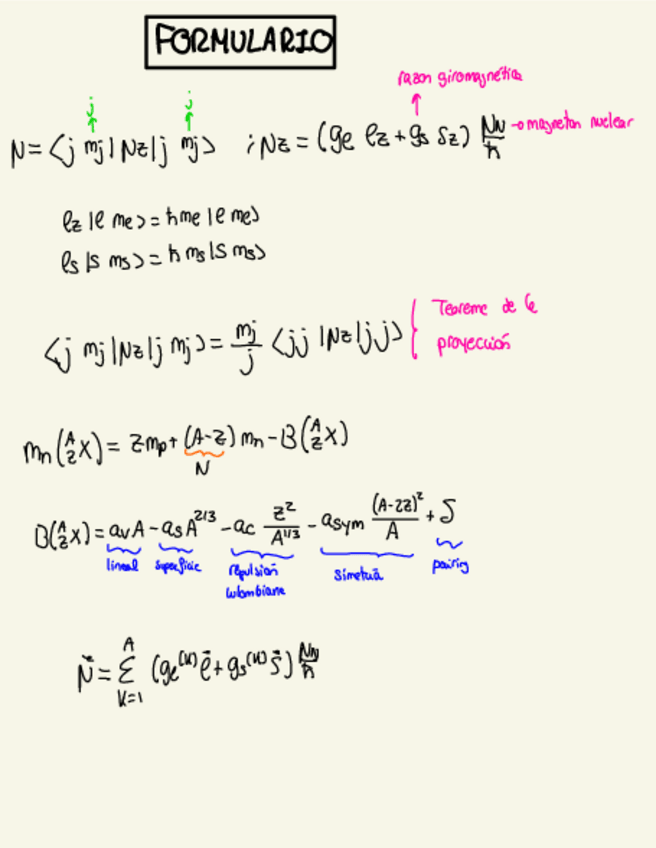 FORMULARIO
razon giromagnética
j j
N = <j mj | Nz | j mj> ; Nz = (ge lz + gs Sz) NN/ħ → magneton nuclear
lz |l me> = ħ me |l me>
ls |s ms> = ħ ms |s ms>
<j mj | Nz | j mj> = mj/j <jj | Nz | jj> { Teorema de la
proyección
mn (A/Z X) = Zmp + (A-Z) mn - B(A/Z X)
N
B(A/Z X) = avA - asA^2/3 - ac Z^2/A^1/3 - asym (A-2Z)^2/A + δ
lineal superficie repulsión simetría pairing
culombiana
N⃗ = Σ (ge^(k) l⃗ + gs^(k) s⃗) NN/ħ
A
K=1